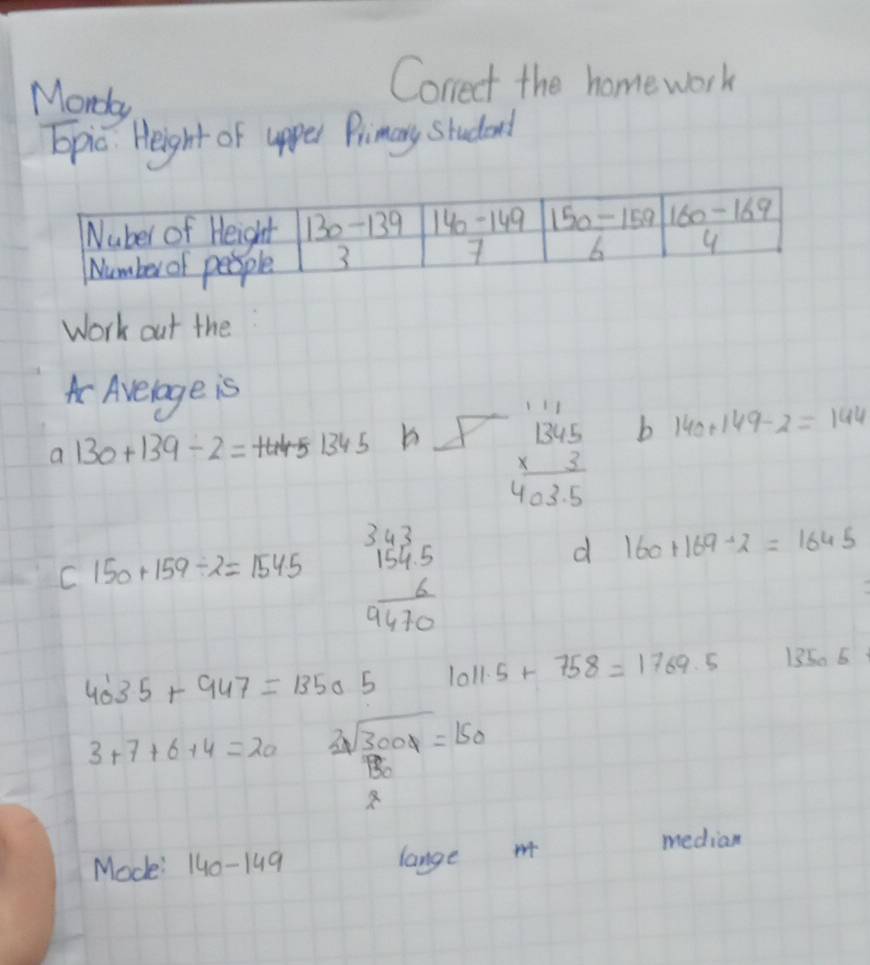 Correct the homework
Monday
Topic: Height of upper Primary Student
Nuber of Height 130-139 140-149 150-159 160-169
Number of people 3 7 6 4
Work out the :
Average is
a 130+139÷2= 1345
1 1 1
1345
× 3
403.5
b 140+149-2= 144
c 150+159÷2=1545
3 4 3
154.5
6
9470
d 160+169÷2 = 1645
=
4035 + 947 = 1350 5 1011.5 + 758 = 1769.5 1350 5 +
3+7+6+4=20 = 150
Mode: 140-149 range median